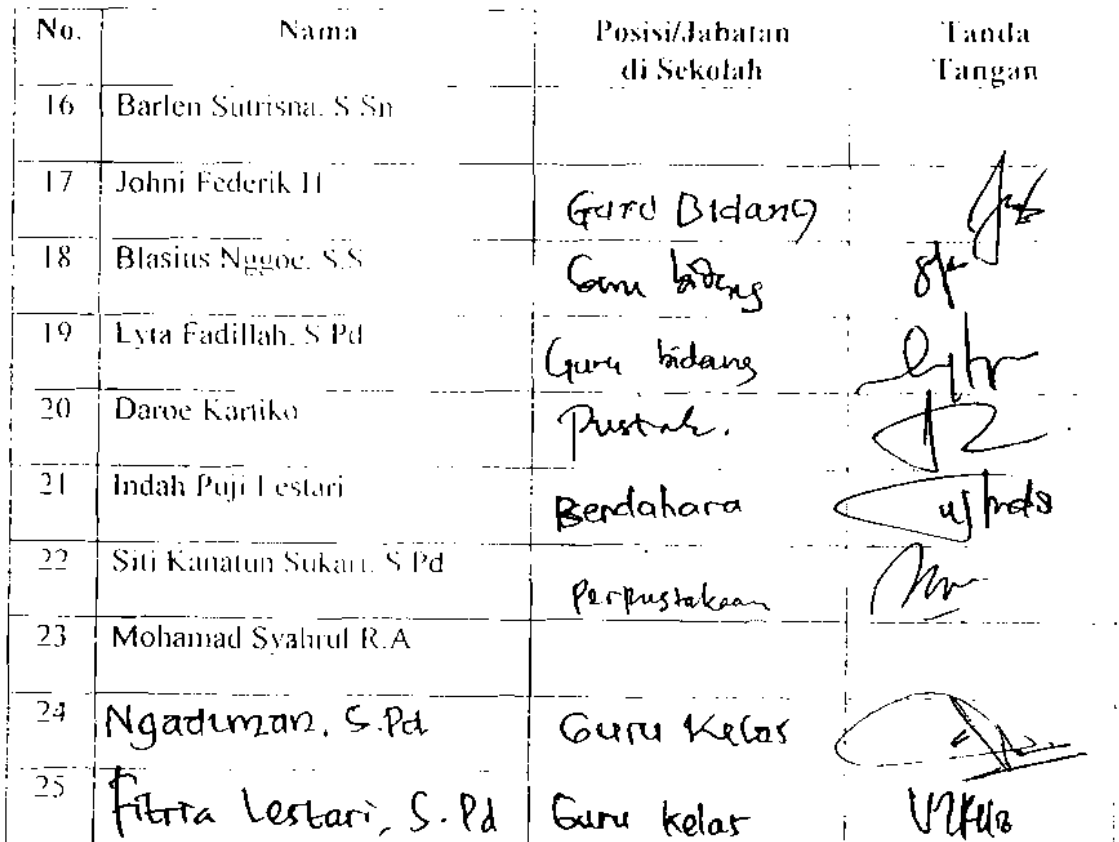 No. Nama Posisi/Jabatan di Sekolah Tanda Tangan
16 Barlen Sutrisna, S.Sn
17 Johni Federik H Guru Bidang
18 Blasius Nggoe, S.S Guru bidang
19 Lyta Fadillah, S.Pd Guru bidang
20 Daroe Kartiko Pustak.
21 Indah Puji Lestari Bendahara
22 Siti Kanatun Sukari, S.Pd Perpustakaan
23 Mohamad Syahrul R.A
24 Ngadiman, S.Pd Guru Kelas
25 Fitria Lestari, S.Pd Guru kelas